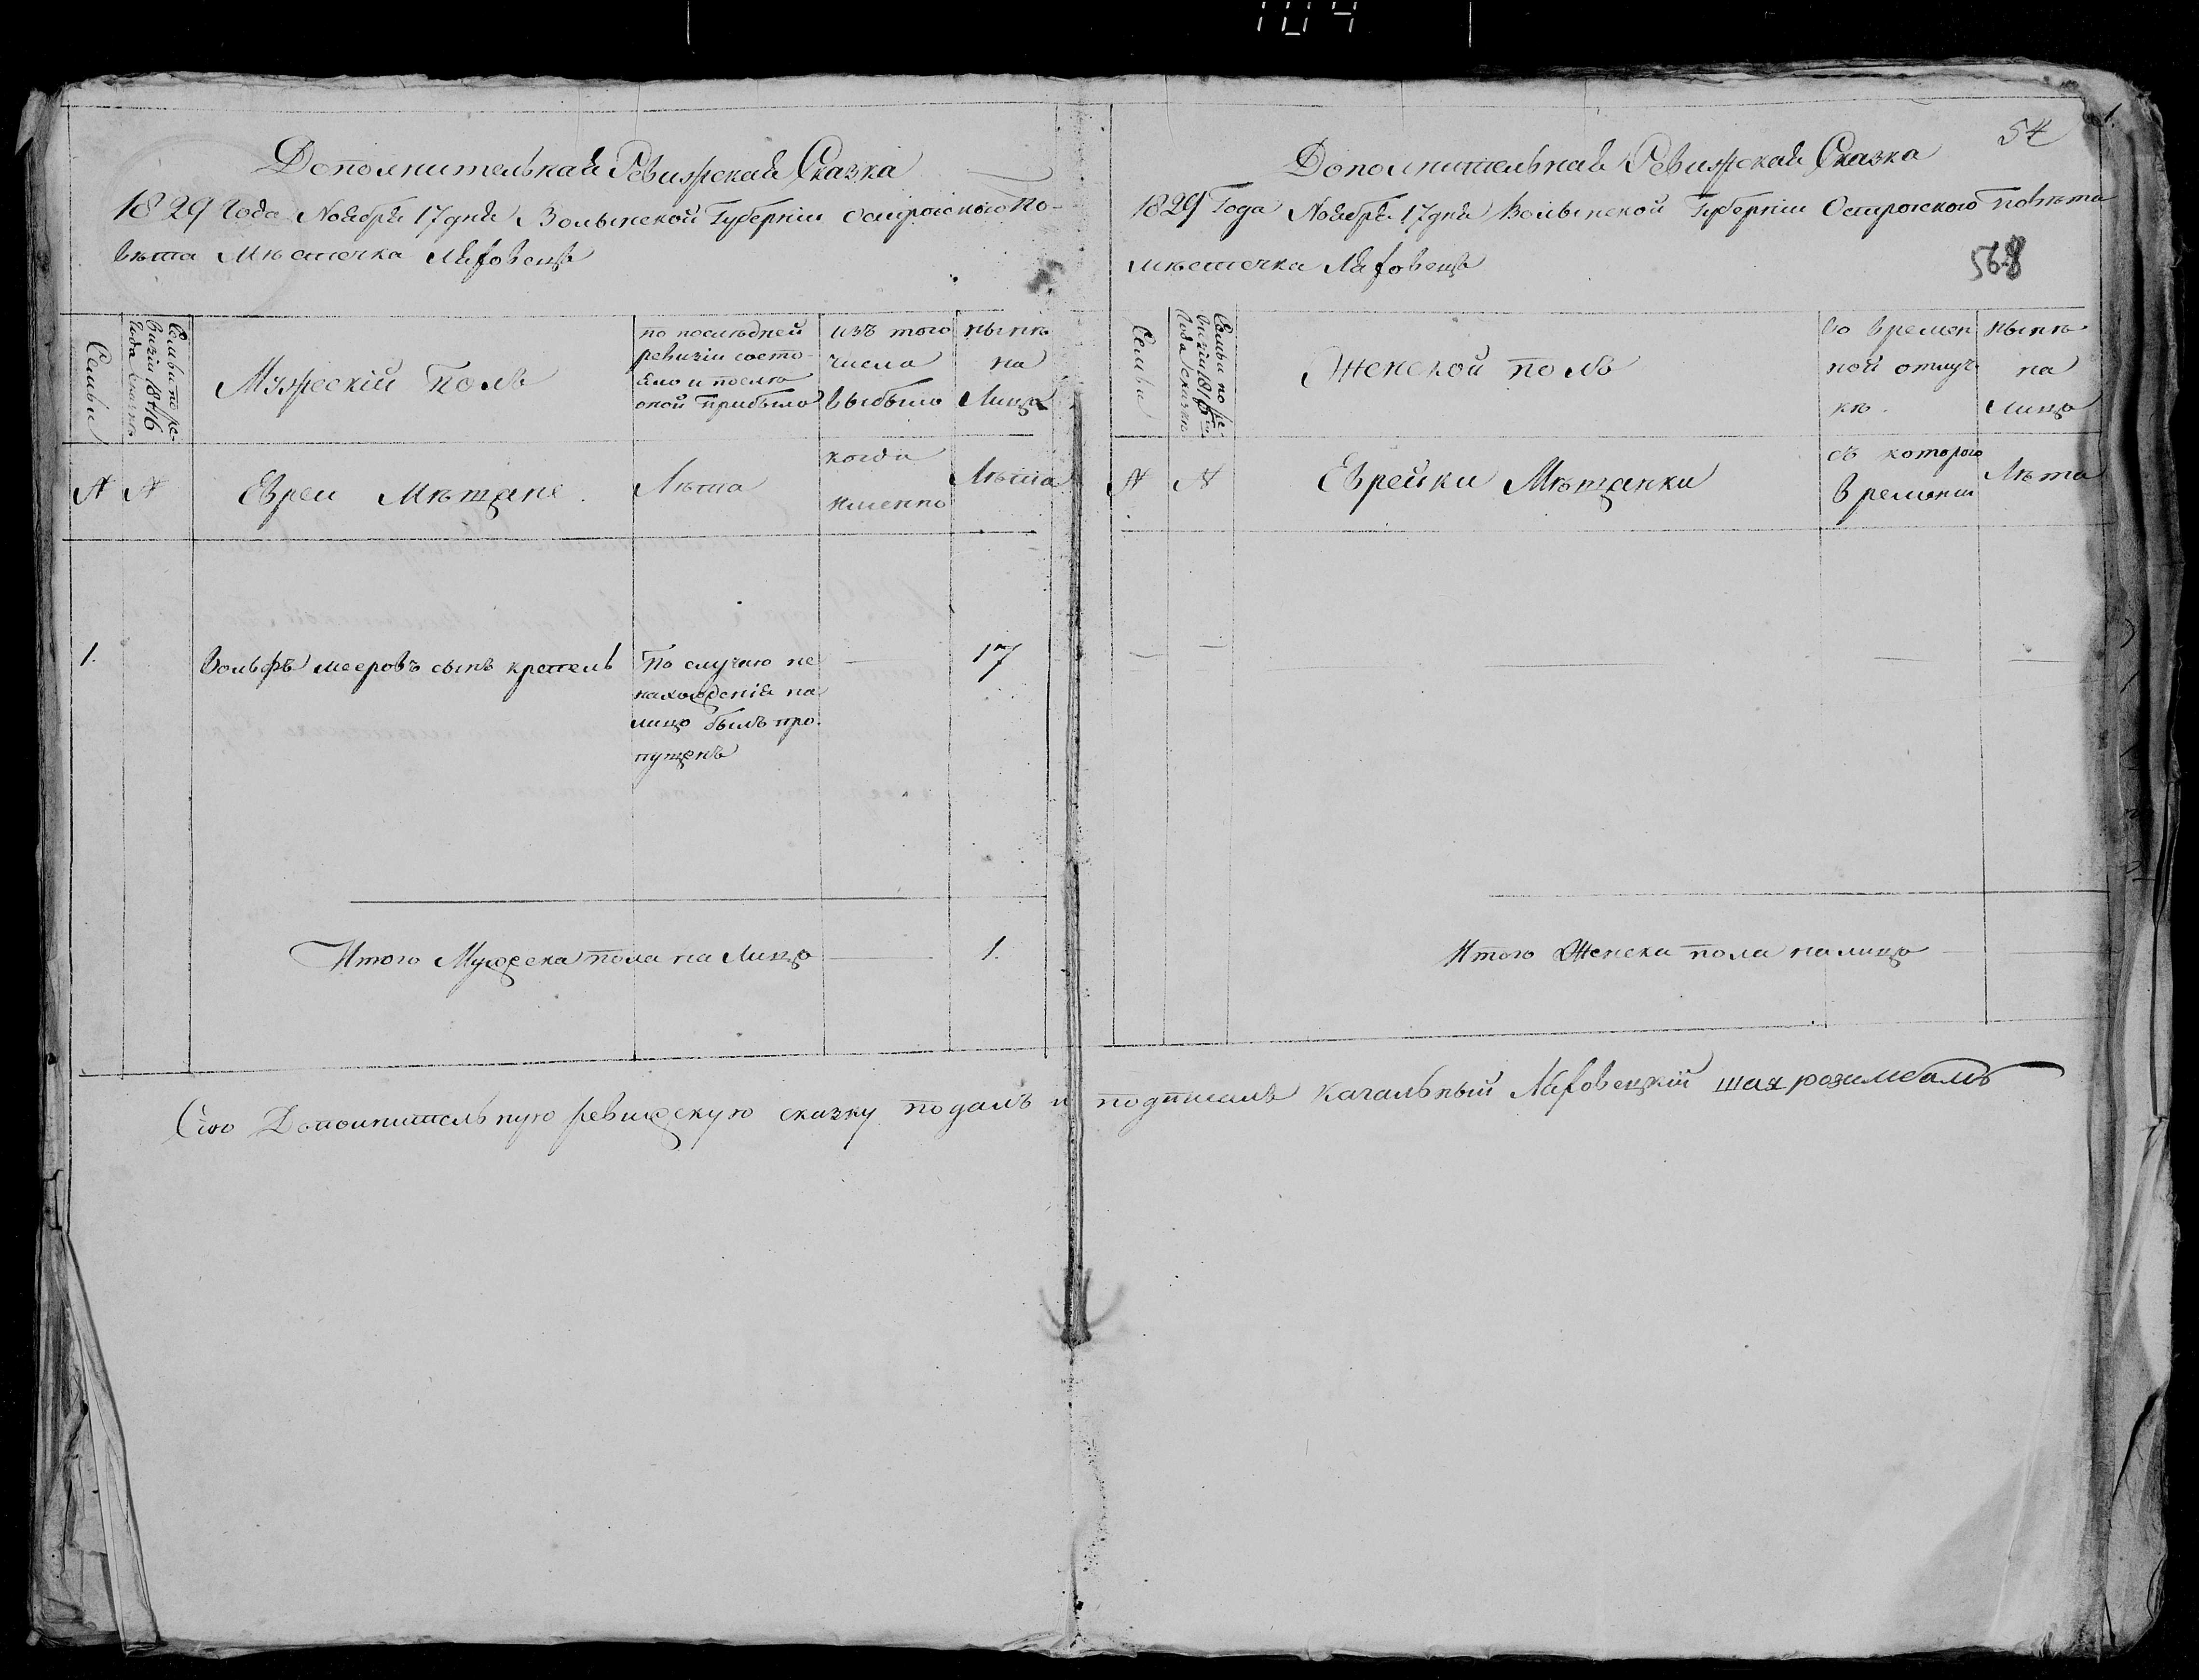 104
Дополнительная Ревижская Сказка
1829 Года Ноября 17 дня Волынской Губернии Острожского По-
вѣта Мѣстечка Ляховецъ
Семьи
Семьи по ре-
визіи 1816
Года Сказкѣ
Мужескій Полъ
по послѣдней
ревизіи состо-
яло и послѣ
оной прибыло
изъ того
числа
выбыло
нынѣ
на
Лицо
№ №
Евреи Мѣщане.
Лѣта
когда
именно
Лѣта
1.
Вольфъ мееровъ сынъ
По случаю не
нахожденія на
лицо былъ про-
пущенъ
—
17
Итого Мужеска пола на Лицо — 1.
54
Дополнительная Ревижская Сказка
1829 Года Ноября 17 дня Волынской Губерніи Острожского Повѣта
мѣстечка Ляховецъ
568
Семьи
Семьи по ре-
визіи 1816
Года Сказкѣ
Женской полъ
во времен
ной отлуч
кѣ.
нынѣ
на
лицо
№ №
Еврейки Мѣщанки
съ которого
времени
Лѣта
— — — — —
Итого Женска пола налицо —
Сію Дополнительную ревижскую сказку подалъ и подписалъ Кагальный Ляховецкій шая